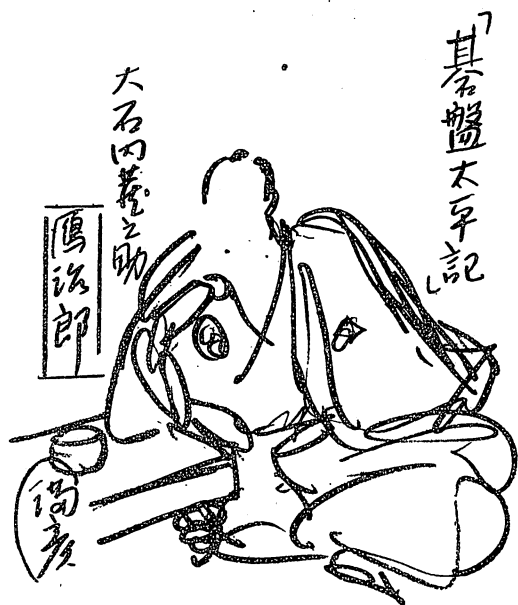 「碁盤太平記」
大石内蔵之助
鴈治郎